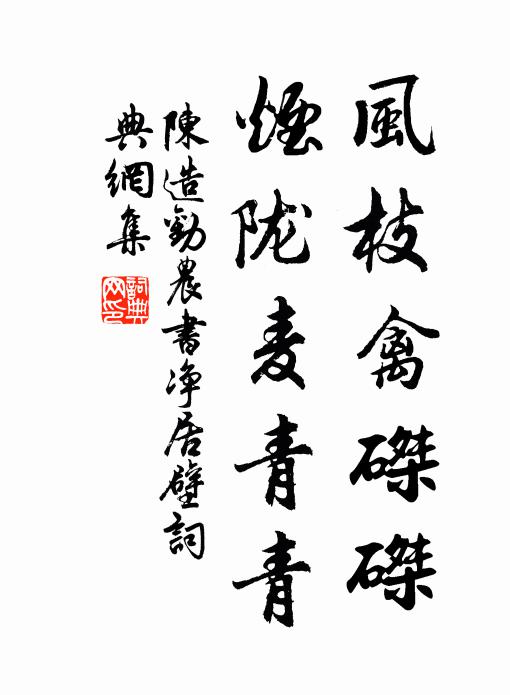 風枝禽磔磔
煙陇麦青青
陳造勸農書净居壁詞
典網集
詞典网印